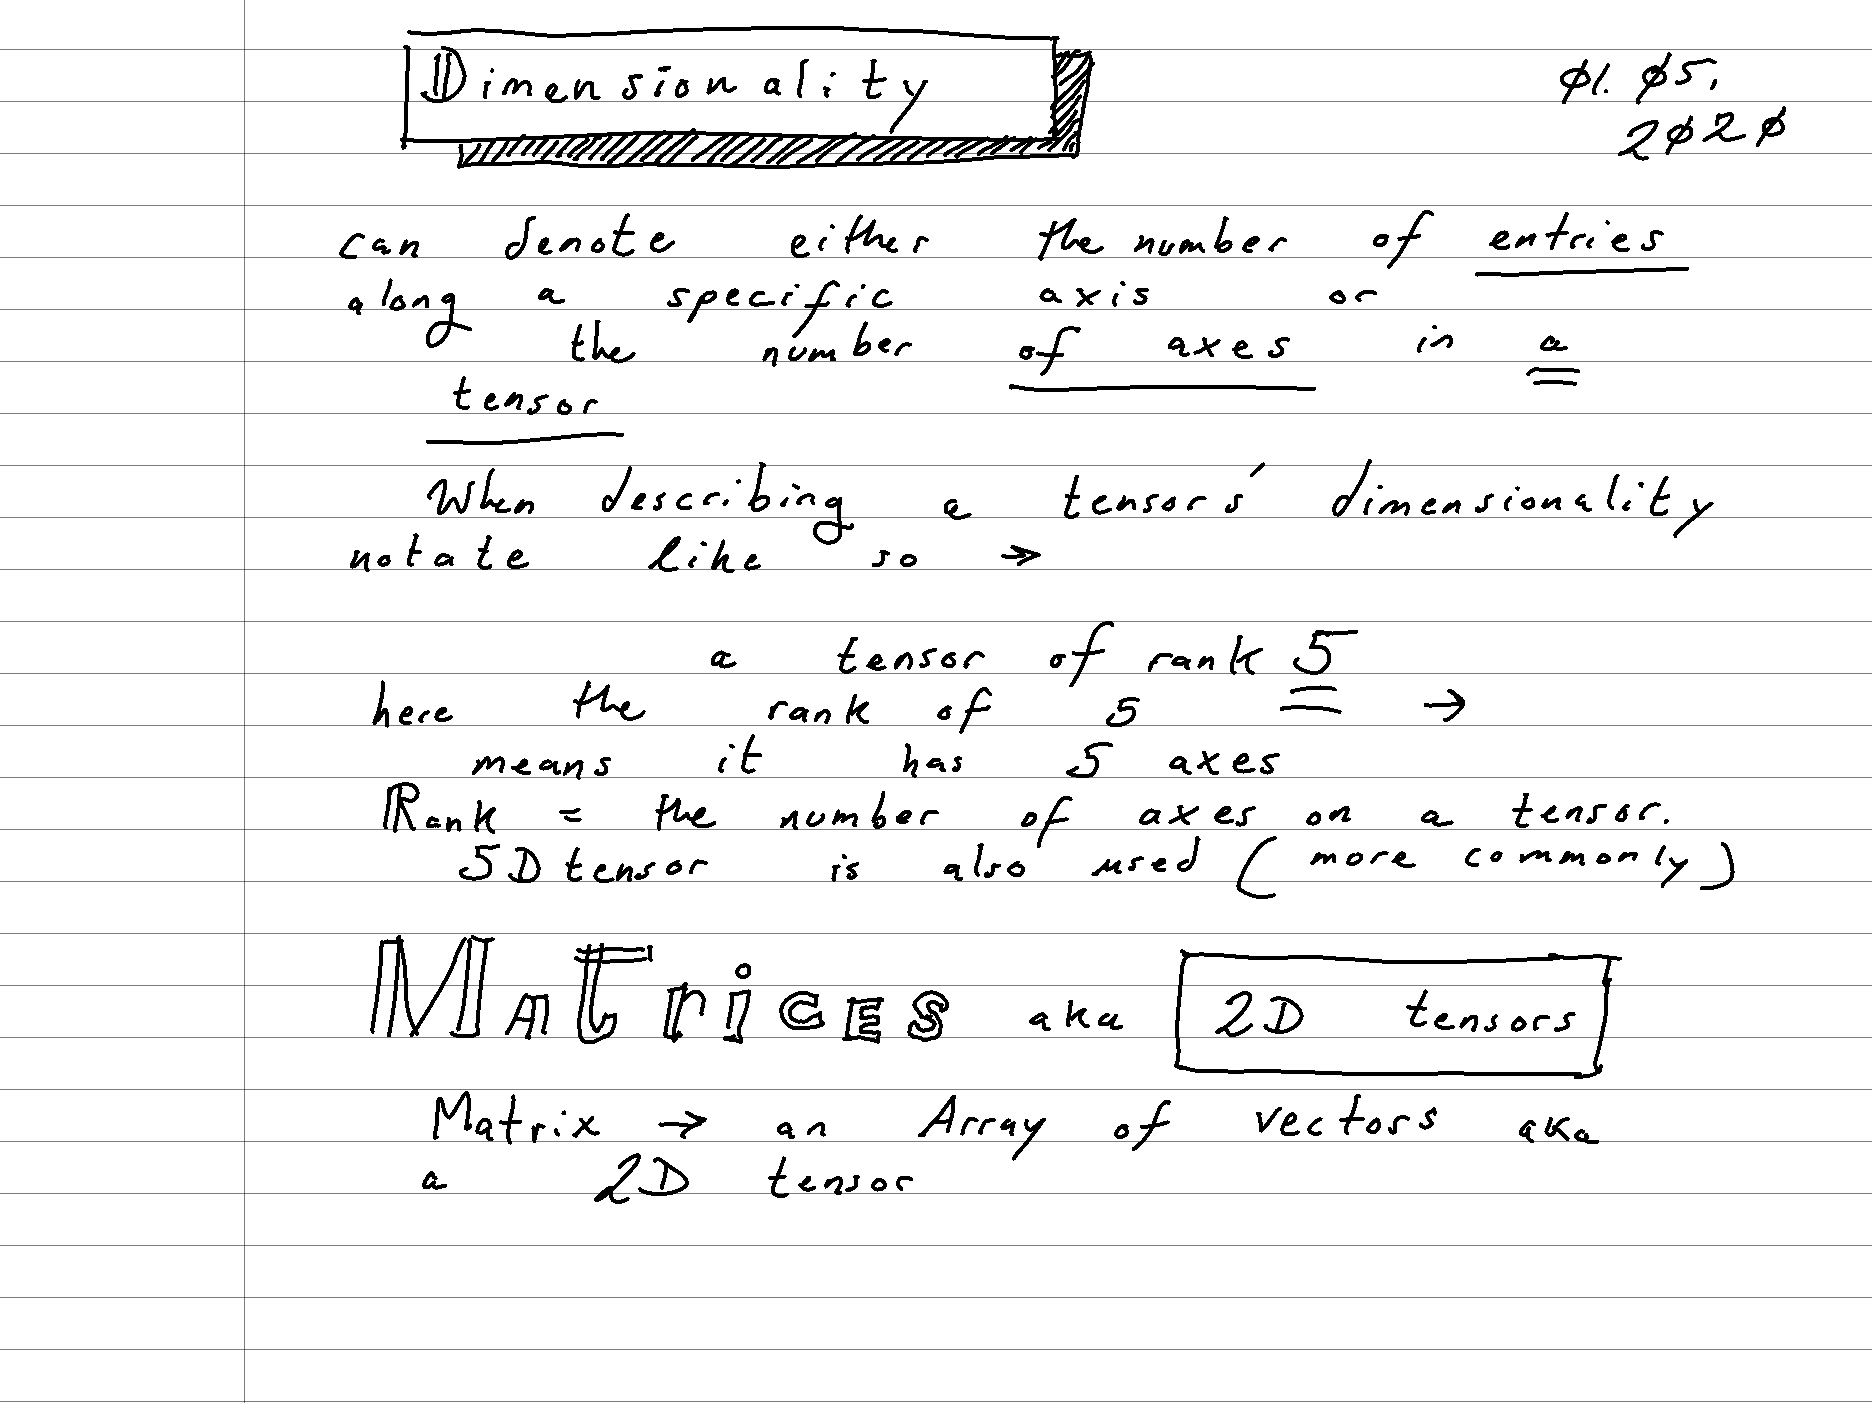 Dimensionality
Ø1. Ø5,
2Ø2Ø
can denote either the number of entries
along a specific axis or
the number of axes in a
tensor
When describing a tensors' dimensionality
notate like so ->>
a tensor of rank 5
here the rank of 5 →
means it has 5 axes
Rank = the number of axes on a tensor.
5D tensor is also used (more commonly)
MATrICES aka 2D tensors
Matrix → an Array of vectors aka
a 2D tensor